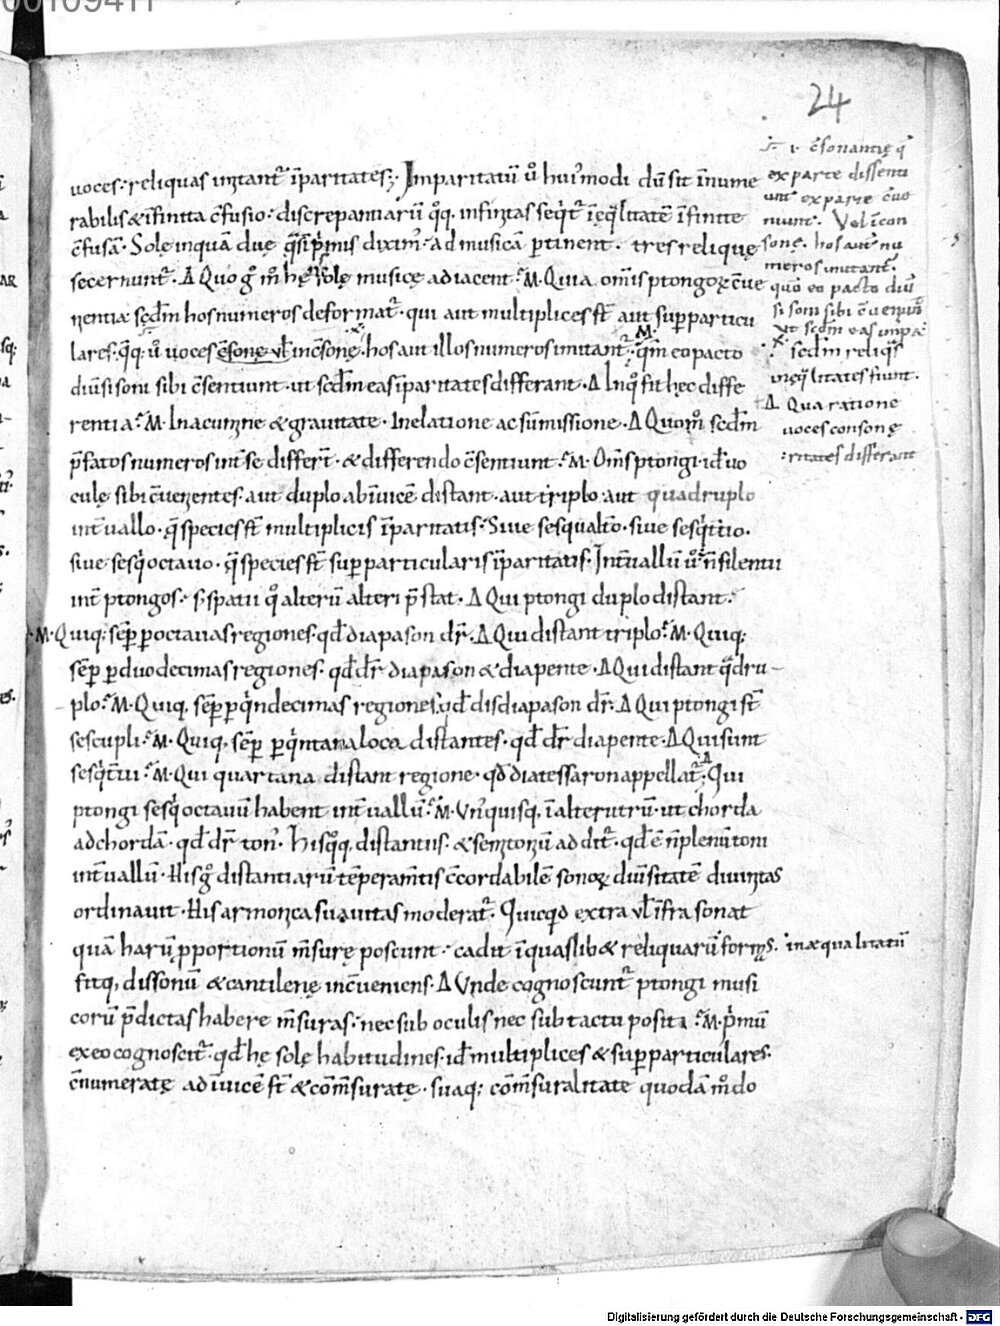 24
uoces· reliquas imitant᷑ īparitates;· Imparitatū ů hui᾽modi dū sit īnume
rabilis & īfinita c̄fusio· discrepantiarū q̊q· infinitas seq̇t᷑ īęq̄litatē īfinite
c̄fusā· Solę inquā duę q̄s ī ṗmis dixim᾽· ad musicā ꝑtinent· tres reliquę
secernunt᷑· Δ Quo g̊ m̊ hę solę musicę adiacent· M· Quia om̄is ptongoꝝ c̄ue
nientia sc̄dm hos numeros deformat᷑· qui aut multiplices st̄ aut suꝑparticu
lares· q̇q· ů uoces c̄sonę ul̄ inc̄sonę· hos aut illos numeros imitant᷑· M· q̄m eo pacto
diūsi soni sibi c̄sentiunt· ut sc̄dm eas īparitates differant· Δ In q̊ fit hęc diffe
rentia· M· In acumine & grauitate· In elatione ac sūmissione· Δ Quom̊ sc̄dm
p̄fatos numeros int̄ se differt̄· & differendo c̄sentiunt· M· Om̄s ptongi· id̄ uo
culę sibi c̄uenientes· aut duplo ab īuicē distant· aut triplo· aut quadruplo
int̄uallo· q̄ species st̄ multiplicis īparitatis· Siue sesqualt̄o· siue sesq̇t̄tio·
siue sesq̇octauo· q̄ species st̄ suꝑparticularis īparitatis· Int̄uallū ů n̄ silentii
int̄ ptongos· s; spatii q̊ alterū alteri p̄stat· Δ Qui ptongi duplo distant·
M· Quiq; seꝑ ꝑ octauas regiones· qd̄ diapason dr̄· Δ Qui distant triplo· M· Quiq;
seꝑ ꝑ duodecimas regiones· qd̄ dr̄ diapason & diapente· Δ Qui distant q̄dru-
plo· M· Quiq, seꝑ ꝑ q̇ndecimas regiones, qd̄ disdiapason dr̄· Δ Qui ptongi st̄
sescupli· M· Quiq, seꝑ ꝑ q̇ntana loca distantes· qd̄ dr̄ diapente· Δ Qui sunt
sesq̇t̄tii· M· Qui quartana distant regione· qd̄ diatessaron appellat᷑; Δ Qui
ptongi sesq̇octauū habent int̄uallū· M· Un᾽quisq, ī alterutrū· ut chorda
ad chordā· qd̄ dr̄ ton᾽· His q̊q, distantiis· & semitoniū addit᷑· qd̄ ē n̄ plenū toni
int̄uallū· His g̊ distantiarū tēꝑam̄tis c̄cordabilē sonoꝝ diūsitatē diuinitas
ordinauit· His armonica suauitas moderat᷑· Quicq̇d extra ul̄ īfra sonat
quā harū ꝓportionū m̄surę poscunt· cadit ī quaslib& reliquarū formas· inæqualitatū
fitq, dissonū & cantilenę inc̄ueniens· Δ Unde cognoscunt᷑ ptongi musi
corū p̄dictas habere m̄suras· nec sub oculis nec sub tactu posita· M· Ṗmū
ex eo cognoscit᷑· qd̄ hę solę habitudines· id̄ multiplices & suꝑparticulares·
c̄numeratę ad īuicē st̄ & com̄suratę· suaq; com̄suralitate quodā m̊do
·i· c̄sonantię q̄
ex parte dissenti
unt ex parte c̄ue
niunt· Vel īcon
sonę· hos aut nu
meros imitant᷑·
quo eo pacto diū
si soni sibi c̄ueniunt
ut sc̄dm eas impa
sc̄dm reliq̄s
inęq̄litates fiunt·
Δ Qua ratione
uoces consonę
ritates differant
Digitalisierung gefördert durch die Deutsche Forschungsgemeinschaft - DFG